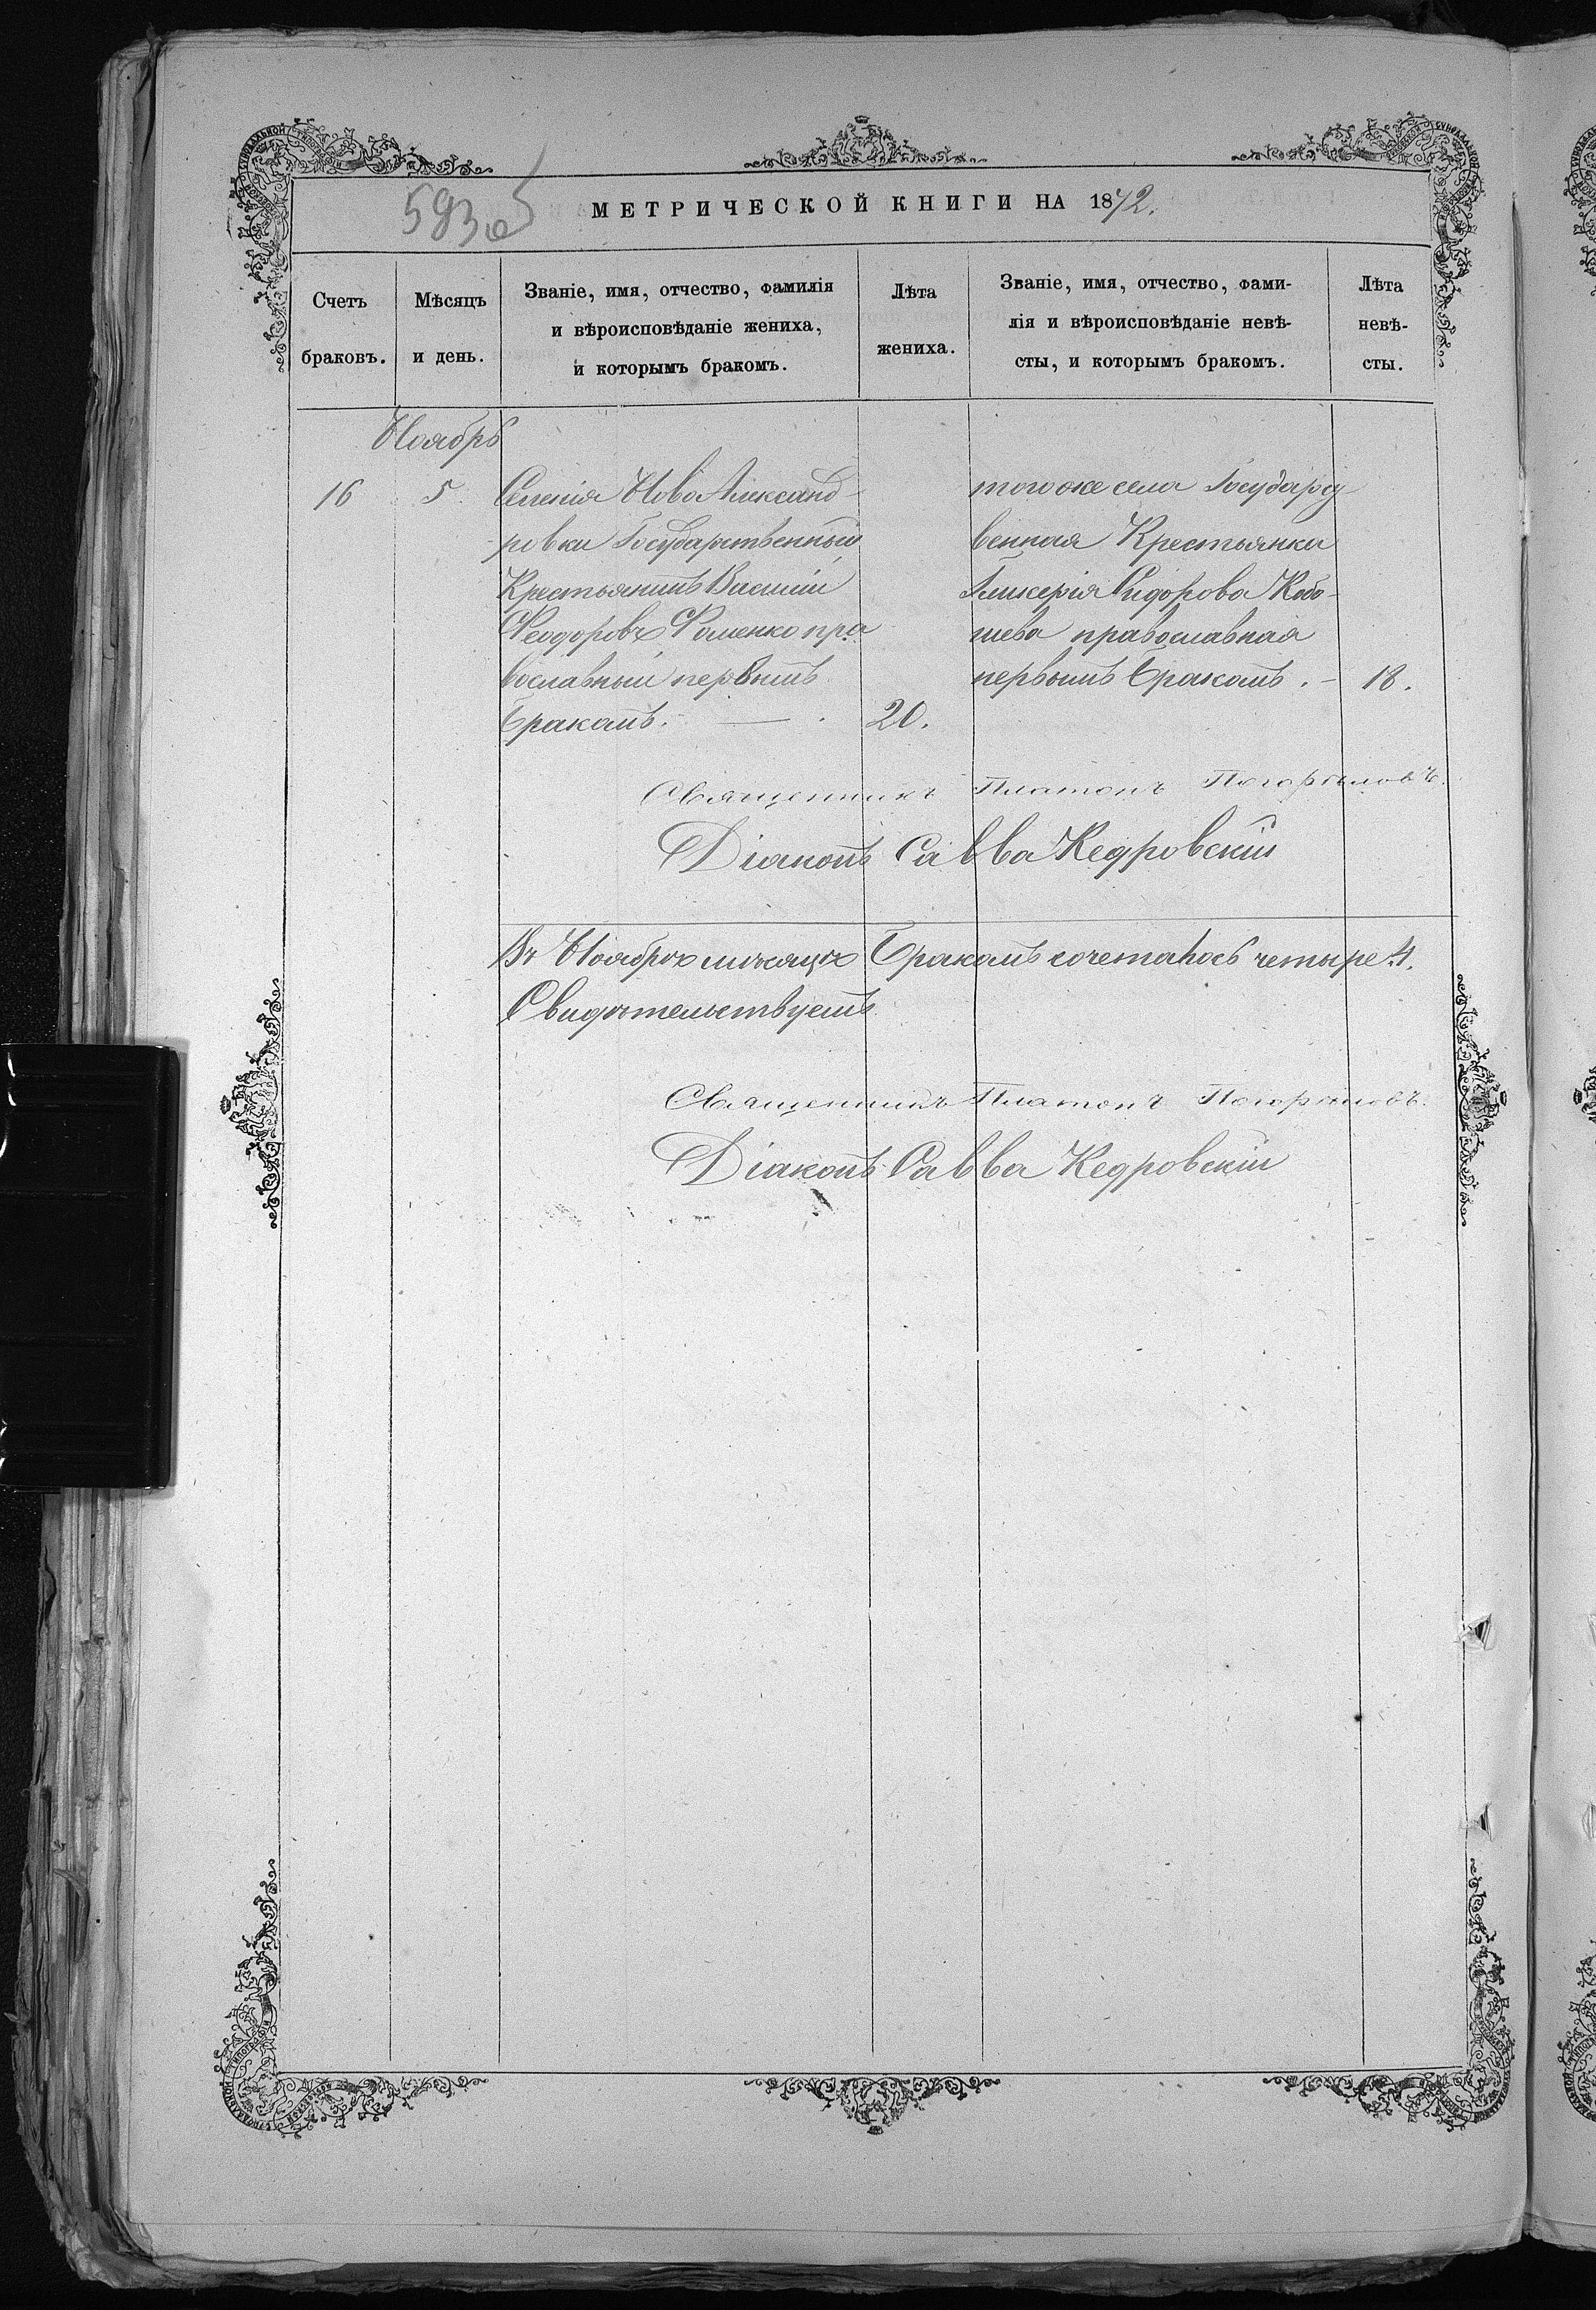 593об
МЕТРИЧЕСКОЙ КНИГИ НА 1872.
Счетъ
браковъ.
Мѣсяцъ
и день.
Званіе, имя, отчество, фамилія
и вѣроисповѣданіе жениха,
и которымъ бракомъ.
Лѣта
жениха.
Званіе, имя, отчество, фами-
лія и вѣроисповѣданіе невѣ-
сты, и которымъ бракомъ.
Лѣта
невѣ-
сты.
Ноябрь
16
5
Селенія Ново Александ-
ровки Государственный
Крестьянинъ Василій
Феодоровъ Фоменко пра
вославный первымъ
Бракомъ. — . 20.
того же села Государст
венная Крестьянка
Гликерія Сидорова Кобо-
шева православная
первымъ Бракомъ. — 18.
Священникъ Платонъ Погорѣловъ.
Діаконъ Савва Кедровскій
Въ Ноябрѣ мѣсяцѣ Бракомъ сочеталось четыре 4.
Свидѣтельствуемъ
Священникъ Платонъ Погорѣловъ.
Діаконъ Савва Кедровскій